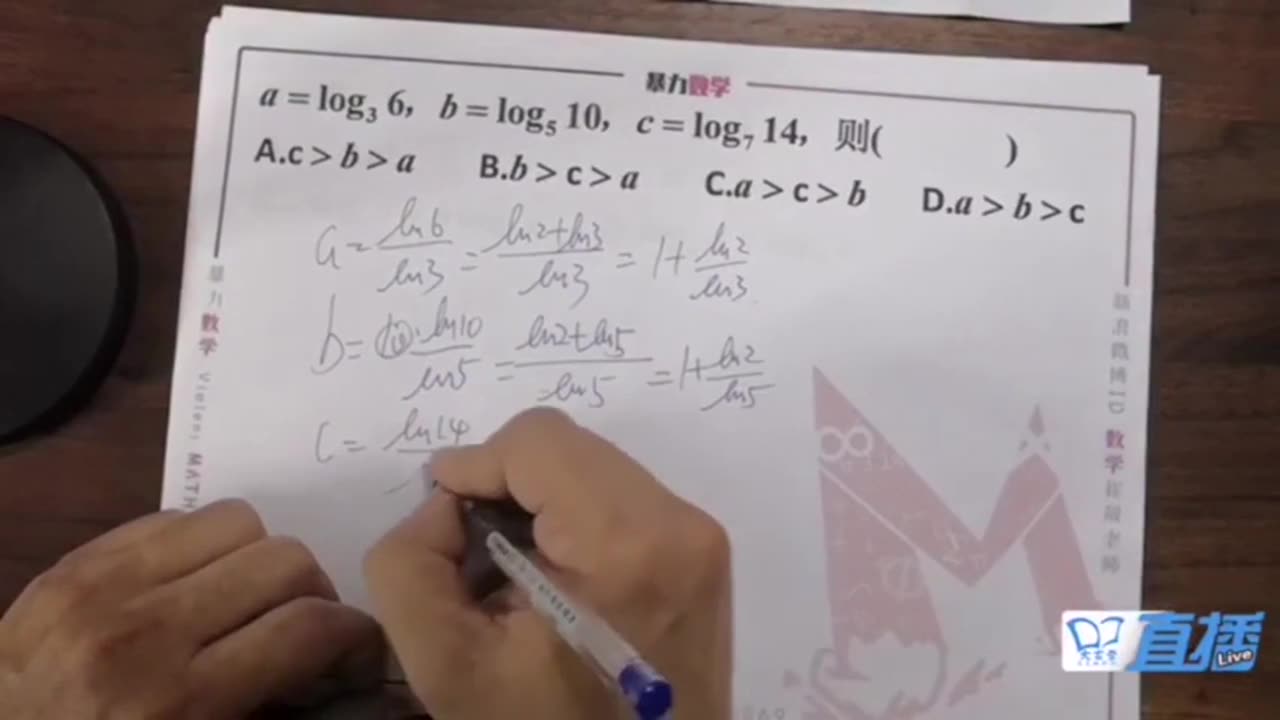 暴力数学
a = log₃ 6, b = log₅ 10, c = log₇ 14, 则( )
A.c > b > a B.b > c > a C.a > c > b D.a > b > c
a = ln6/ln3 = (ln2+ln3)/ln3 = 1+ ln2/ln3
b = ln10/ln5 = (ln2+ln5)/ln5 = 1+ ln2/ln5
c = ln14
暴力数学 MATH
数学
老师
直播
Live